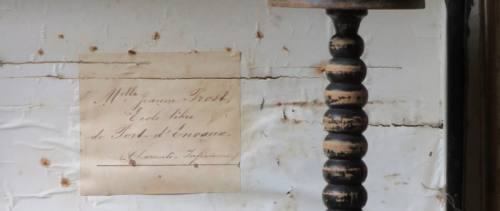 Mlle Jeanne Prost,
École libre
de Port d'Envaux.
Charente-Inférieure